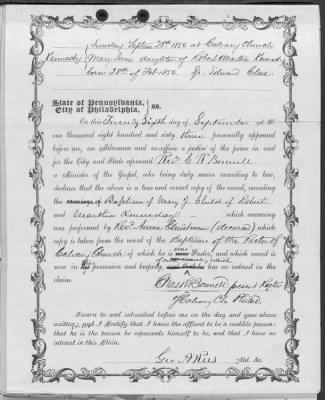 Sunday Septem 28th 1856 at Calvary Church
Kennedy Mary Jane daughter of Robert Martha Kenned
born 28th of Feb 1856. Jr. Edward Close
State of Pennsylvania, City of Philadelphia, } SS.
On this Twenty Eighth day of September A.D.
one thousand eight hundred and sixty three personally appeared
before me, an Alderman and ex-officio a justice of the peace in and
for the City and State aforesaid Revd. C R Bonnell
a Minister of the Gospel, who being duly sworn according to law,
declares that the above is a true and correct copy of the record, recording
the marriage of Baptism of Mary J. Child of Robert
and Martha Kennedy which ceremony
was performed by Revd. Aaron Christman (deceased) which
copy is taken from the record of the Baptisms of the Rector of
Calvary Church of which he is now Pastor, and which record is
now in the possession and keeping, has no interest in the
claim.
Chas R Bonnell present Rector
of Calvary Ch. Philad.
Sworn to and subscribed before me on the day and year above
written; and I Certify that I know the affiant to be a credible person;
that he is the person he represents himself to be, and that I have no
interest in this Claim.
Geo. A Ries Ald. &c